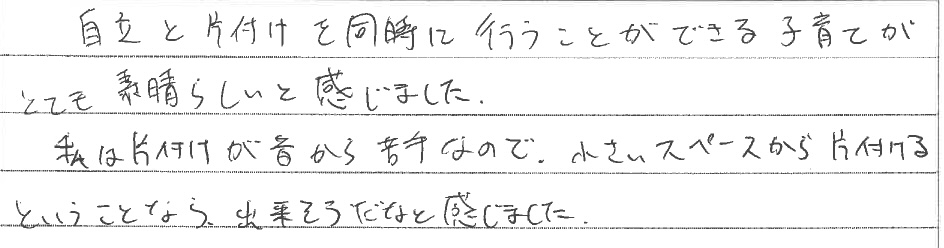 自立と片付けを同時に行うことができる子育てが
とても素晴らしいと感じました.
私は片付けが昔から苦手なので、小さいスペースから片付ける
ということなら、出来そうだなと感じました.